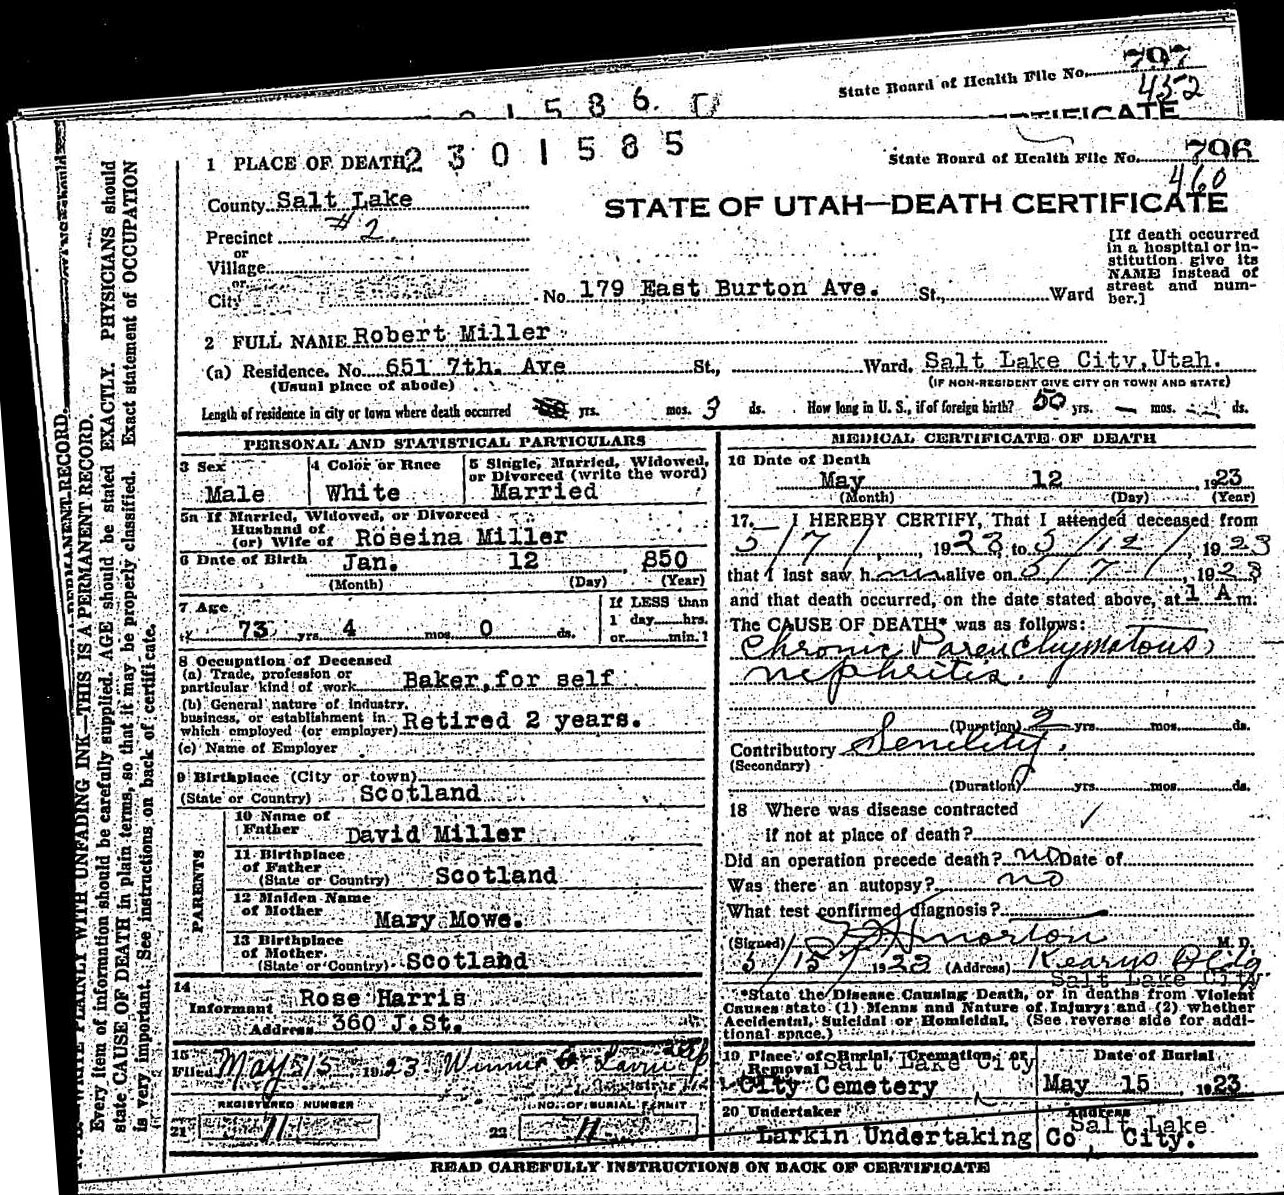 State Board of Health File No. 797
452
2301586
CERTIFICATE
1 PLACE OF DEATH 2301585
State Board of Health File No. 796
460
County Salt Lake
STATE OF UTAH—DEATH CERTIFICATE
Precinct #2
or
Village
or
City
No. 179 East Burton Ave. St., Ward
[If death occurred
in a hospital or in-
stitution give its
NAME instead of
street and num-
ber.]
2 FULL NAME Robert Miller
(a) Residence. No. 651 7th. Ave St., Ward, Salt Lake City, Utah.
(Usual place of abode)
(IF NON-RESIDENT GIVE CITY OR TOWN AND STATE)
Length of residence in city or town where death occurred yrs. mos. 3 ds. How long in U. S., if of foreign birth? 50 yrs. — mos. — ds.
PERSONAL AND STATISTICAL PARTICULARS
3 Sex
Male
4 Color or Race
White
5 Single, Married, Widowed,
or Divorced (write the word)
Married
5a If Married, Widowed, or Divorced
Husband of
(or) Wife of Roseina Miller
6 Date of Birth Jan. 12, 850
(Month) (Day) (Year)
7 Age
73 yrs. 4 mos. 0 ds.
If LESS than
1 day hrs.
or min.?
8 Occupation of Deceased
(a) Trade, profession or
particular kind of work Baker, for self
(b) General nature of industry,
business, or establishment in
which employed (or employer) Retired 2 years.
(c) Name of Employer
9 Birthplace (City or town)
(State or Country) Scotland
PARENTS
10 Name of
Father David Miller
11 Birthplace
of Father
(State or Country) Scotland
12 Maiden Name
of Mother Mary Mowe.
13 Birthplace
of Mother
(State or Country) Scotland
14
Informant Rose Harris
Address 360 J. St.
15
Filed May 15, 1923
REGISTERED NUMBER
21 11
NO. OF BURIAL PERMIT
22 11
MEDICAL CERTIFICATE OF DEATH
16 Date of Death
May 12, 1923
(Month) (Day) (Year)
17. I HEREBY CERTIFY, That I attended deceased from
5/7/, 1923 to 5/12/, 1923
that I last saw him alive on 5/7/, 1923
and that death occurred, on the date stated above, at 1 A m.
The CAUSE OF DEATH* was as follows:
Chronic Parenchymatous
nephritis.
(Duration) 2 yrs. mos. ds.
Contributory Senility.
(Secondary)
(Duration) yrs. mos. ds.
18 Where was disease contracted
if not at place of death?
Did an operation precede death? no Date of
Was there an autopsy? no
What test confirmed diagnosis?
(Signed) Morton M. D.
5/15/1923 (Address) Kearns Bldg
Salt Lake City
*State the Disease Causing Death, or in deaths from Violent
Causes state (1) Means and Nature of Injury; and (2) whether
Accidental, Suicidal or Homicidal. (See reverse side for addi-
tional space.)
19 Place of Burial, Cremation, or
Removal Salt Lake City
City Cemetery
Date of Burial
May 15 1923
20 Undertaker
Larkin Undertaking Co,
Address
Salt Lake
City.
READ CAREFULLY INSTRUCTIONS ON BACK OF CERTIFICATE
WRITE PLAINLY WITH UNFADING INK—THIS IS A PERMANENT RECORD.
Every item of information should be carefully supplied. AGE should be stated EXACTLY. PHYSICIANS should
state CAUSE OF DEATH in plain terms, so that it may be properly classified. Exact statement of OCCUPATION
is very important. See instructions on back of certificate.